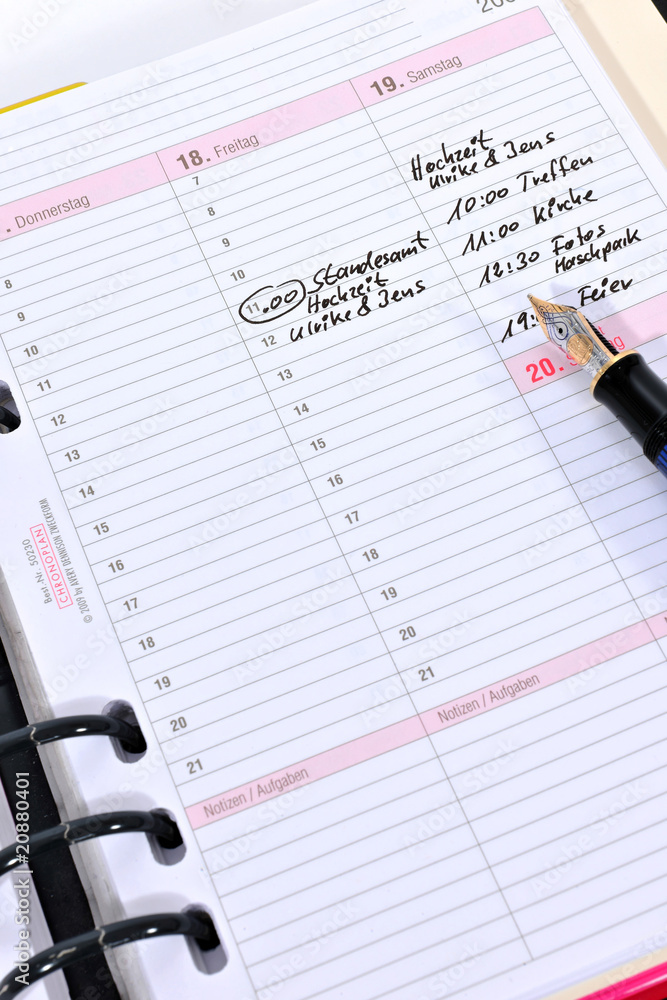 200
. Donnerstag
8
9
10
11
12
13
14
15
16
17
18
19
20
21
Notizen / Aufgaben
18. Freitag
7
8
9
10
11.00 Standesamt
Hochzeit
12 Ulrike & Jens
13
14
15
16
17
18
19
20
21
Notizen / Aufgaben
19. Samstag
Hochzeit
Ulrike & Jens
10:00 Treffen
11:00 Kirche
12:30 Fotos
Maschpark
19: Feier
20.
Best.-Nr. 50230
CHRONOPLAN
© 2009 by AVERY DENNISON ZWECKFORM
Adobe Stock | #20880401